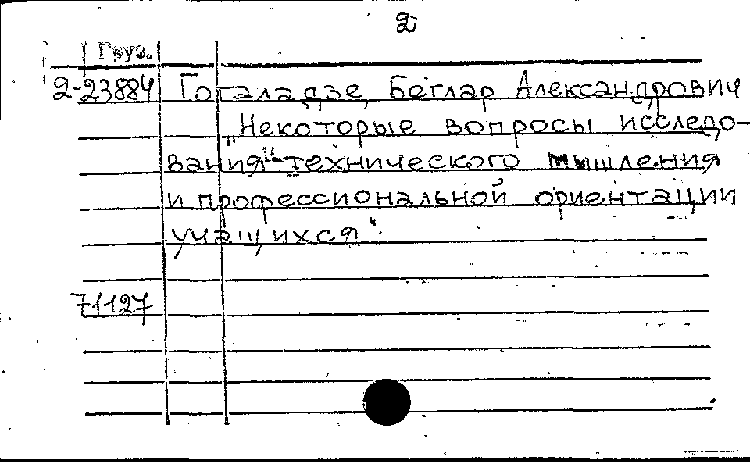 2
Груз.
2-23884 Гогаладзе, Беглар Александрович
„Некоторые вопросы исследо-
вания“ технического мышления
и профессиональной ориентации
учащихся“
71127